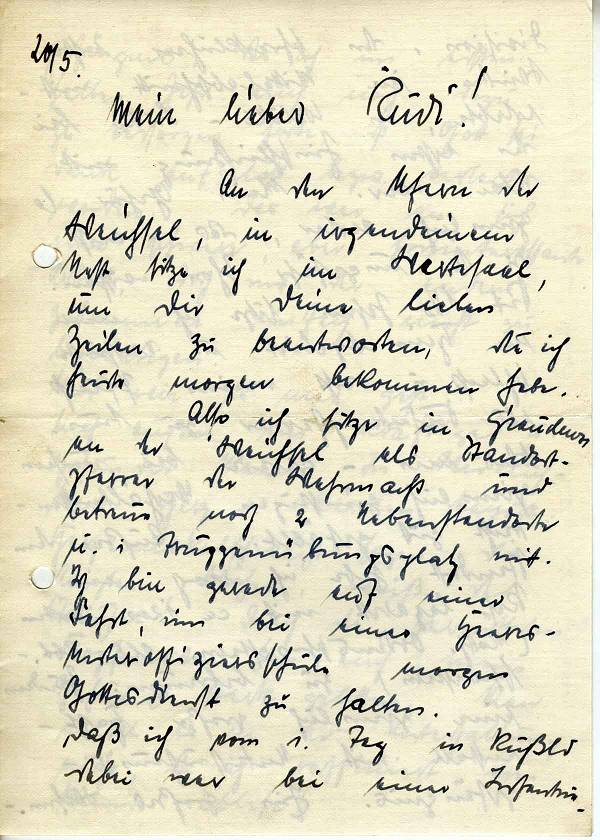 20/5.
Mein lieber Rudi!
An den Ufern der
Weichsel, in irgendeinem
Nest sitze ich im Wartesaal,
um Dir Deine lieben
Zeilen zu beantworten, die ich
heute morgen bekommen habe.
Also ich sitze in Graudenz
an der Weichsel als Standort-
pfarrer der Wehrmacht und
betreue noch 2 Nebenstandorte
u. 1 Truppenübungsplatz mit.
Ich bin gerade auf einer
Fahrt, um bei einer Heeres-
Unteroffiziersschule morgen
Gottesdienst zu halten.
Daß ich vom 1. Tag in Rußld
dabei war bei einer Infanterie-